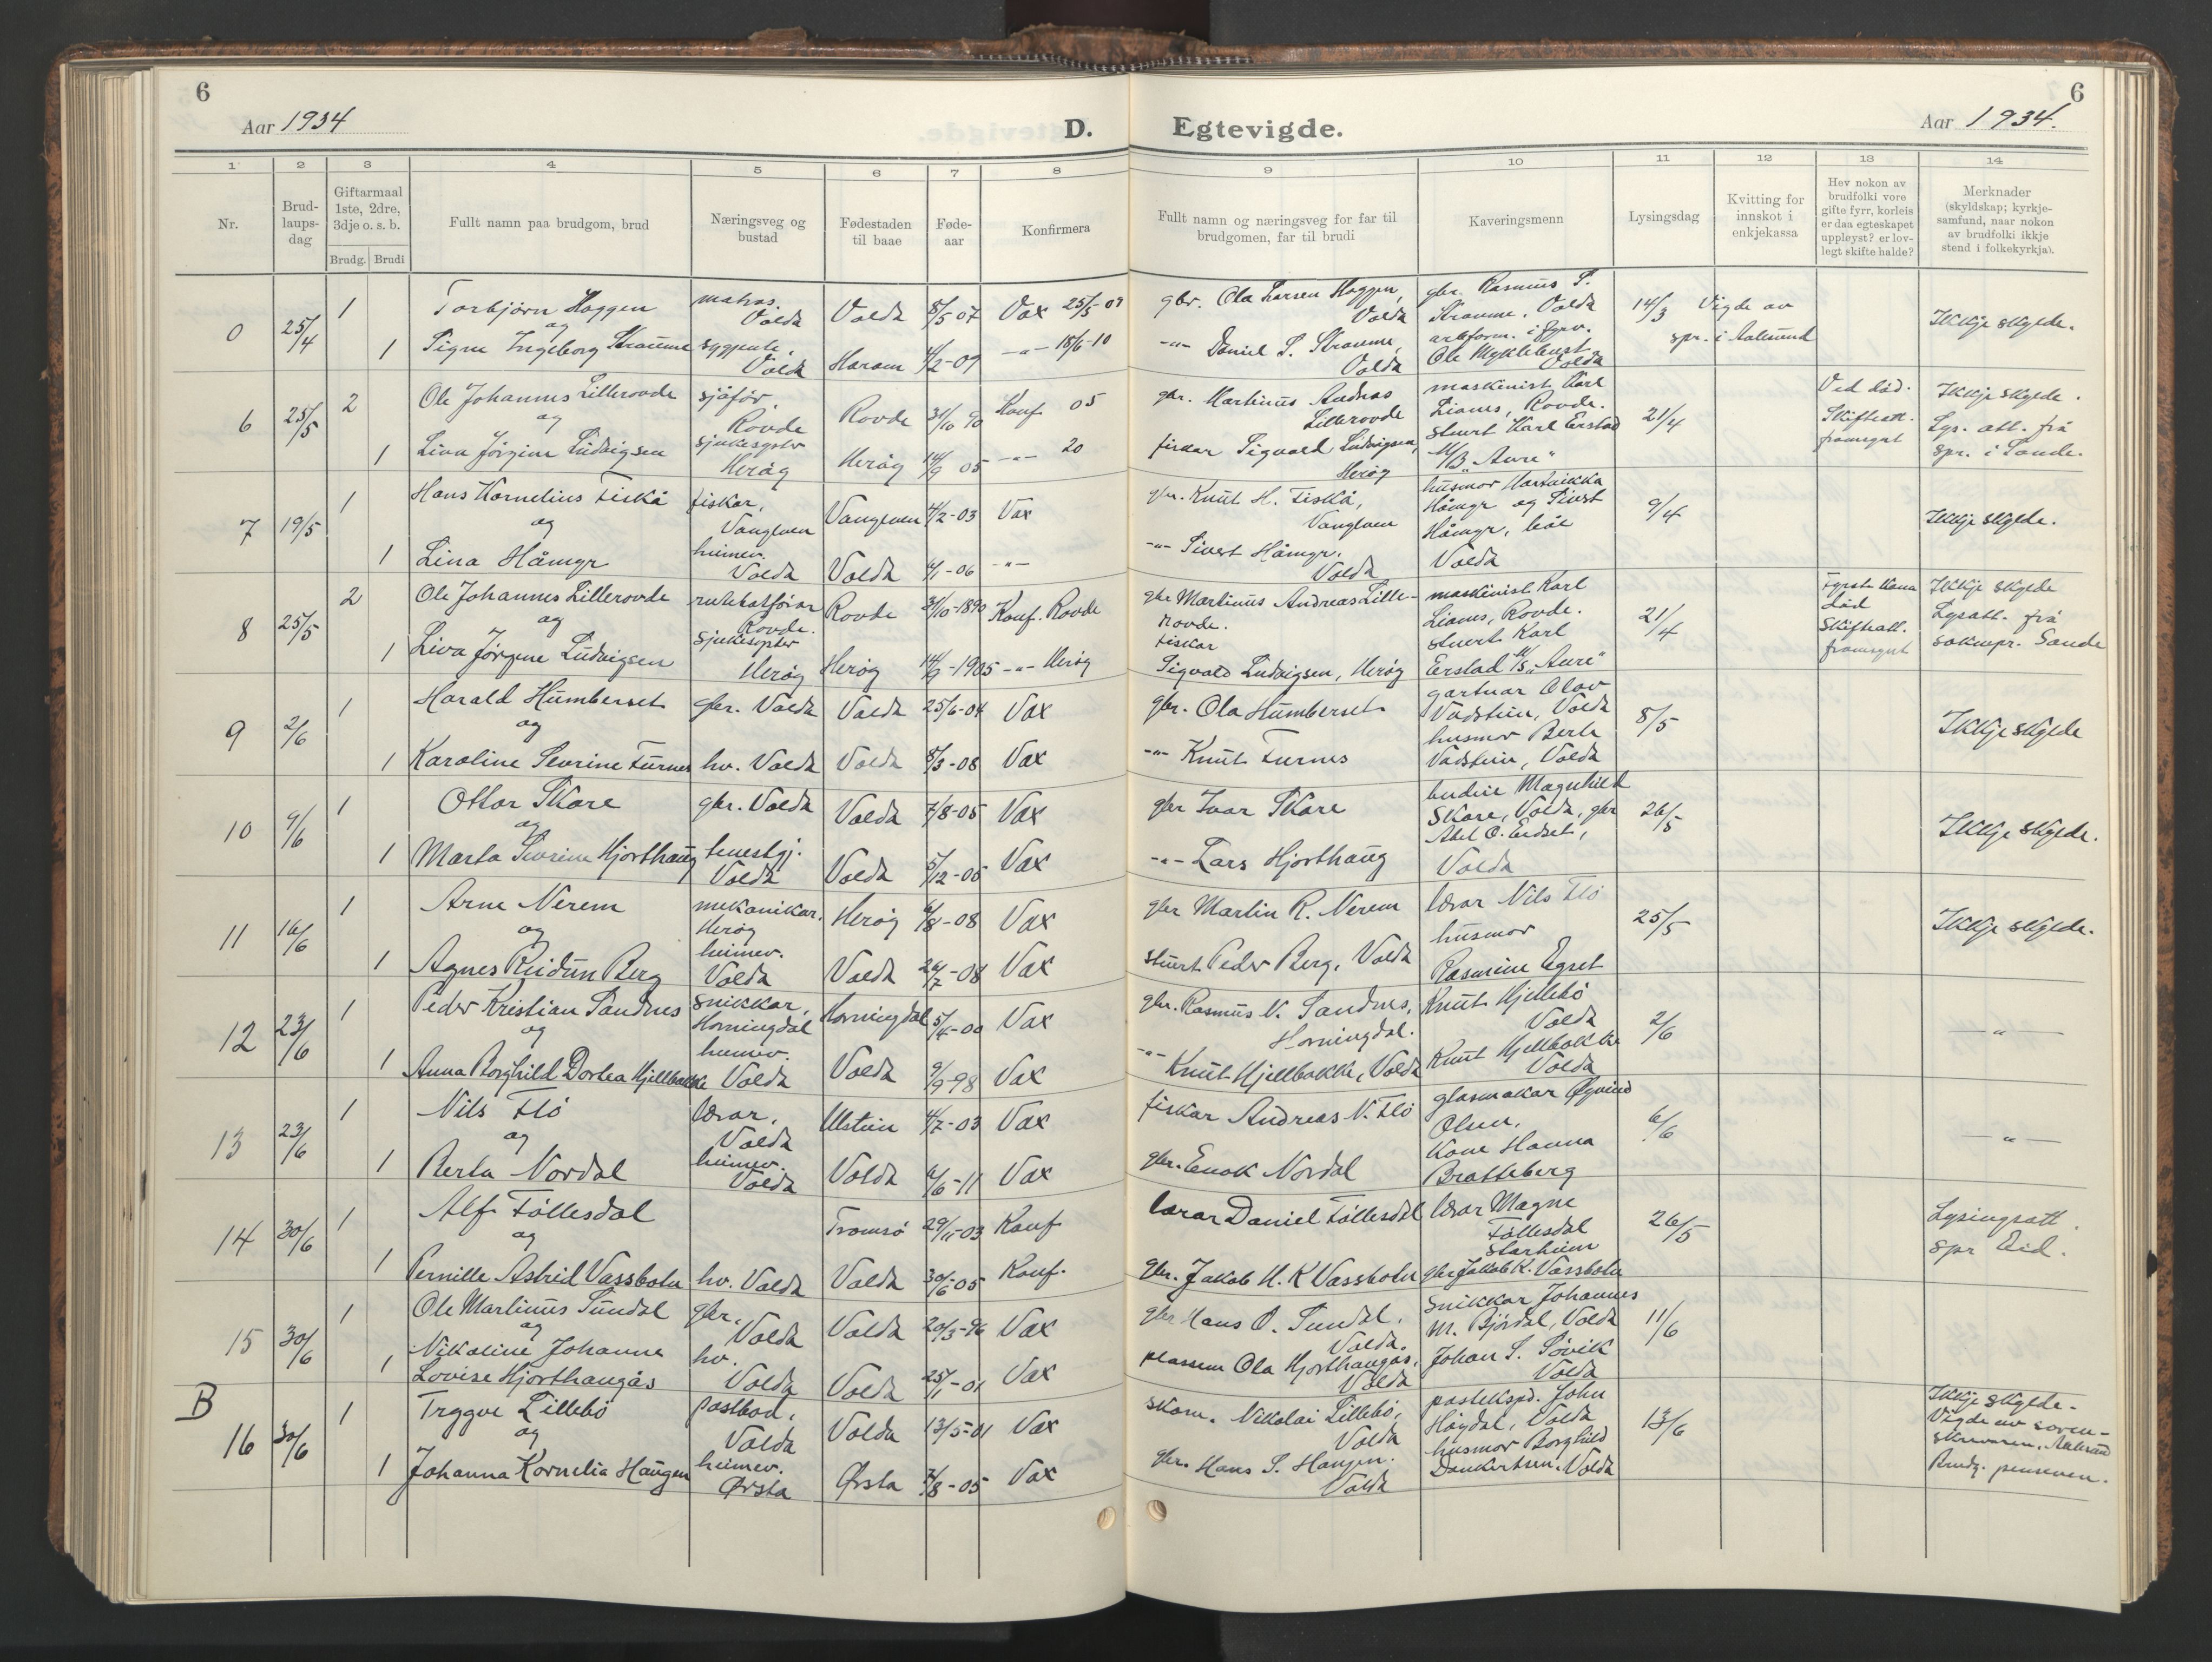 6
Aar 1934
D.
Egtevigde.
Aar 1934.
6
1 2 3 4 5 6 7 8 9 10 11 12 13 14
Nr.
Brud-
laups-
dag
Giftarmaal
1ste, 2dre,
3dje o. s. b.
Brudg. Brudi
Fullt namn paa brudgom, brud
Næringsveg og
bustad
Fødestaden
til baae
Føde-
aar
Konfirmera
Fullt namn og næringsveg for far til
brudgomen, far til brudi
Kaveringsmenn
Lysingsdag
Kvitting for
innskot i
enkjekassa
Hev nokon av
brudfolki vore
gifte fyrr, korleis
er daa egteskapet
uppløyst? er lov-
legt skifte halde?
Merknader
(skyldskap; kyrkje-
samfund, naar nokon
av brudfolki ikkje
stend i folkekyrkja).
0 25/4 1 Torbjørn Haggen
og
1 Signe Ingeborg Straume
Volda
Volda
Volda 8/5 07 Vax 25/5-09
Haram 4/2-09 -"- 15/6-10
gbr. Ola Larsen Haggen,
Volda
-"- Daniel S. Straume,
Volda
gbr. Rasmus S.
Straume, Volda
Ole Myklebust
Volda
14/3 Vigde av
spr. i Aalesund
Ikkje skylde.
6 25/5 2 Ole Johannes Lillerovde
og
1 Liva Jørgine Ludvigsen
sjåfør,
Rovde
sjukesyster
Herøy
Rovde 31/10 90 Konf 05
Herøy 14/9 05 -"- 20
gbr. Martinus Andreas
Lillerovde
fiskar Sigvald Ludvigsen,
Herøy
maskinist Karl
Lianes, Rovde.
stuert Karl Erstad
M/B "Aure"
21/4
Ved død.
Skifteatt.
framsynt
Ikkje skylde.
Lys. att. frå
spr. i Sande.
7 19/5 1 Hans Kornelius Fiskå
og
1 Lina Håmyr
fiskar,
Vanylven
heimev.
Volda
Vanylven 4/2-03 Vax
Volda 4/1-06 -"-
gbr. Knut H. Fiskå,
Vanylven
-"- Sivert Håmyr.
Volda
husmor
Håmyr og Sivert
Håmyr, båe
Volda
9/4
Ikkje skylde.
8 25/5 2 Ole Johannes Lillerovde
og
1 Liva Jørgine Ludvigsen
rutebatførar
Rovde.
sjukesyster
Herøy
Rovde 31/10-1890 Konf. Rovde
Herøy 14/9-1905 -"- Herøy
gbr Martinus Andreas Lille-
rovde.
fiskar
Sigvald Ludvigsen, Herøy
maskinist Karl
Lianes, Rovde.
stuert Karl
Erstad M/S "Aure"
21/4
Fyrste kona
død
Skifteatt.
framsynt
Ikkje skylde
Lysatt. frå
soknepr. Sande
9 2/6 1 Harald Humberset
og
1 Karoline Sevrine Furnes
gbr. Volda
hv. Volda
Volda 25/6-04 Vax
Volda 8/3-08 Vax
gbr. Ola Humberset
-"- Knut Furnes
gartnar Olav
Vadstein, Volda
husmor Berta
Vadstein, Volda
8/5
Ikkje skylde
10 9/6 1 Ottar Skare
og
1 Marta Sevrine Hjorthaug
gbr. Volda
tenestgj.
Volda
Volda 7/8-05 Vax
Volda 5/12-05 Vax
gbr Ivar Skare
-"- Lars Hjorthaug
budeie Magnhild
Skare, Volda, gbr
Abel O. Eidset,
Volda
26/5
Ikkje skylde.
11 16/6 1 Arne Nerem
og
1 Agnes Reidun Berg
mekanikar.
Herøy
heimev.
Volda
Herøy 6/8-08 Vax
Volda 26/7-08 Vax
gbr Martin R. Nerem
stuert Peder Berg, Volda
lærar Nils Flø
husmor
Rasmine Egset
25/5
Ikkje skylde.
12 23/6 1 Peder Kristian Sandnes
og
1 Anna Borghild Dortea Hjellbakke
snikkar,
Horningdal
heimev.
Volda
Horningdal 5/4-00 Vax
Volda 9/9-98 Vax
gbr. Rasmus N. Sandnes,
Horningdal.
-"- Knut Hjellbakke, Volda
Knut Hjellebø
Volda
Knut Hjellbakke
Volda
2/6
-"-
13 23/6 1 Nils Flø
og
1 Berta Nordal
lærar,
Volda
heimev.
Volda
Ulstein 4/7-03 Vax
Volda 6/6-11 Vax
fiskar Andreas N. Flø
gbr. Enok Nordal
glasmakar Øyvind
Olsen,
Kone Hanna
Bratteberg
6/6
-"-
14 30/6 1 Alf Føllesdal
og
1 Pernille Astrid Vassbotn
hv. Volda
Tromsø 29/11-03 Konf
Volda 30/6-05 Konf.
lærar Daniel Føllesdal
gbr. Jakob H. K Vassbotn
lærar Magne
Føllesdal
Starheim
gbr Jakob K. Vassbotn
26/5
Lysingsatt.
spr Eid.
15 30/6 1 Ole Martinus Sundal
og
1 Nikoline Johanna
Lovise Hjorthaugås
gbr.
Volda
hv.
Volda
Volda 20/3-96 Vax
Volda 25/1-01 Vax
gbr Hans O. Sundal,
Volda.
plassem Ola Hjorthaugås,
Volda
snikkar Johannes
M. Bjørdal, Volda
Johan S. Søvik
Volda
11/6
B
16 30/6 1 Tryggve Lillebø
og
1 Johanna Kornelia Haugen
postbod,
Volda
heimev.
Ørsta
Volda 13/5-01 Vax
Ørsta 7/8-05 Vax
skom. Nikolai Lillebø,
Volda
gbr. Hans S. Haugen.
Volda
postekspd. John
Høydal, Volda
husmor Borghild
Dankertsen. Volda
13/6
Ikkje skylde.
Vigde av soren-
skrivaren, Aalesund